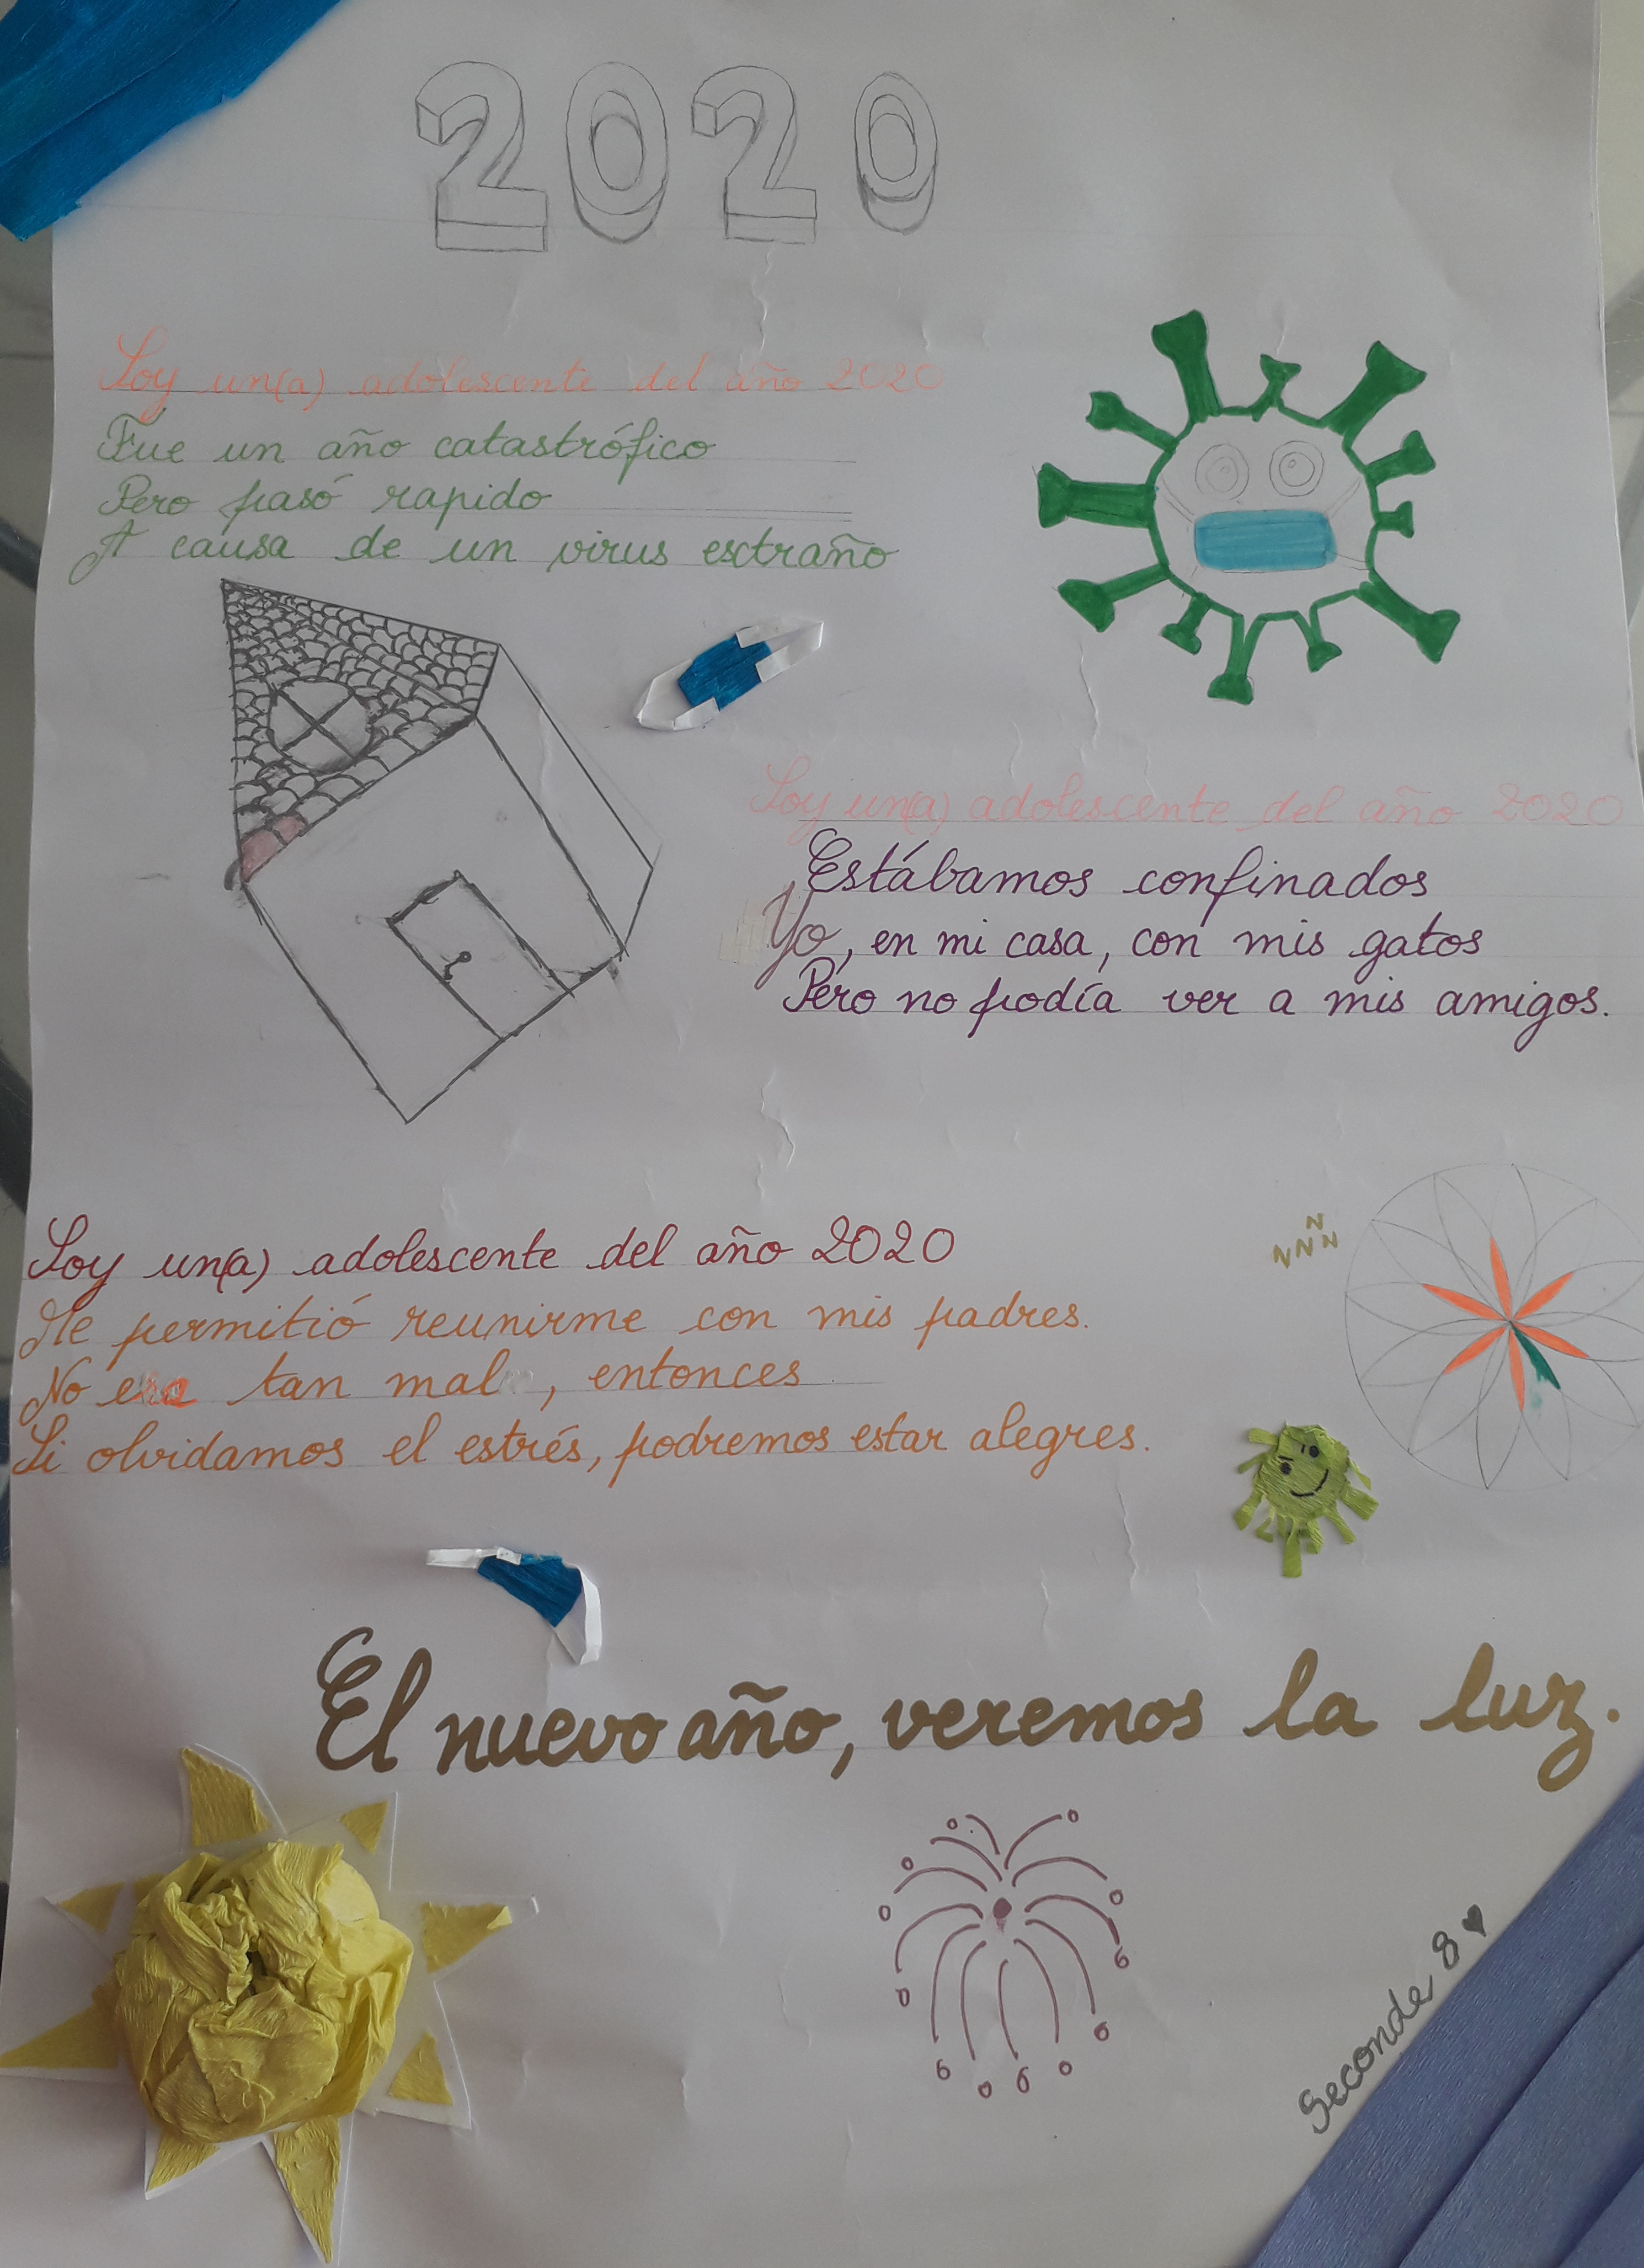 2020
Soy un(a) adolescente del año 2020
Fue un año catastrófico
Pero pasó rapido
A causa de un virus extraño
Soy un(a) adolescente del año 2020
Estábamos confinados
Yo, en mi casa, con mis gatos
Pero no podía ver a mis amigos.
Soy un(a) adolescente del año 2020
Me permitió reunirme con mis padres.
No era tan mal, entonces
Si olvidamos el estrés, podremos estar alegres.
N
N N N
El nuevo año, veremos la luz.
Seconde 8 ♥